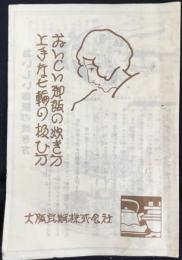 おいしい御飯の炊き方
上手な七輪の扱ひ方
大阪瓦斯株式会社